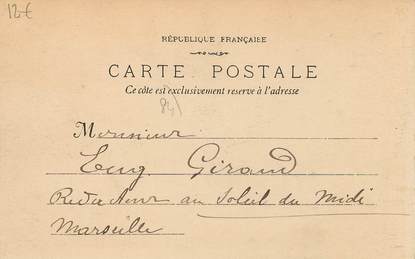 12€
RÉPUBLIQUE FRANÇAISE
CARTE POSTALE
Ce côté est exclusivement réservé à l'adresse
Monsieur
Eug. Giraud
Rédacteur au Soleil du Midi
Marseille